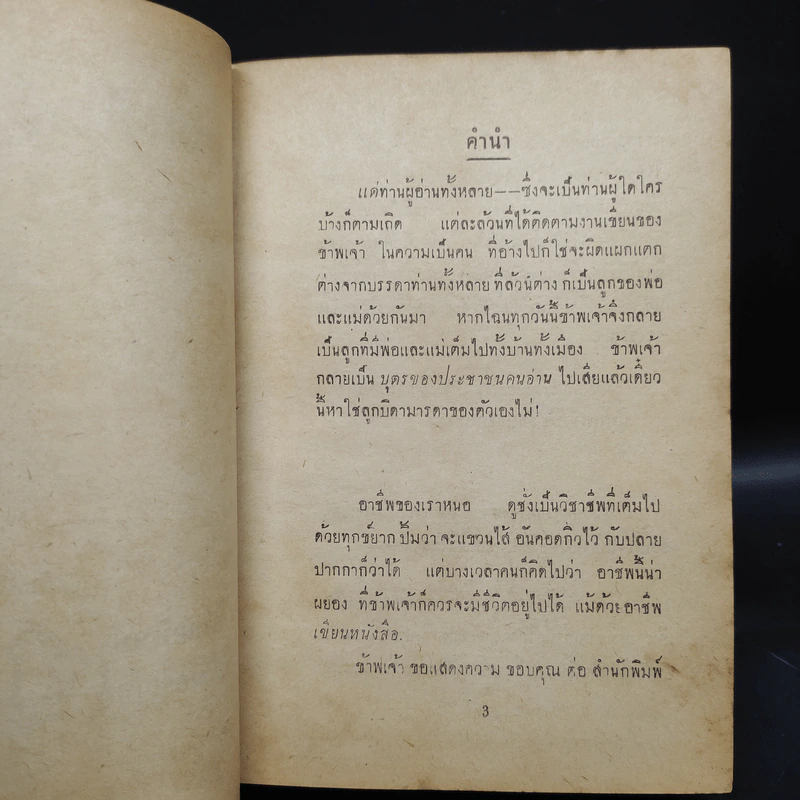 คำนำ
แด่ท่านผู้อ่านทั้งหลาย——ซึ่งจะเป็นท่านผู้ใดใคร
บ้างก็ตามเถิด แต่ละล้วนที่ได้ติดตามงานเขียนของ
ข้าพเจ้า ในความเป็นคน ที่อ้างไปก็ใช่จะผิดแผกแตก
ต่างจากบรรดาท่านทั้งหลาย ที่ล้วนต่าง ก็เป็นลูกของพ่อ
และแม่ด้วยกันมา หากไฉนทุกวันนี้ข้าพเจ้าจึงกลาย
เป็นลูกที่มีพ่อและแม่เต็มไปทั้งบ้านทั้งเมือง ข้าพเจ้า
กลายเป็น บุตรของประชาชนคนอ่าน ไปเสียแล้วเดี๋ยว
นี้หาใช่ลูกบิดามารดาของตัวเองไม่!
อาชีพของเราหนอ ดูซั่งเป็นวิชาชีพที่เต็มไป
ด้วยทุกข์ยาก ปิ้มว่า จะแขวนไส้ อันคอดกิ่วไว้ กับปลาย
ปากกาก็ว่าได้ แต่บางเวลาคนก็คิดไปว่า อาชีพนี้น่า
ผยอง ที่ข้าพเจ้าก็ควรจะมีชีวิตอยู่ไปได้ แม้ด้วยอาชีพ
เขียนหนังสือ.
ข้าพเจ้า ขอแสดงความ ขอบคุณ ต่อ สำนักพิมพ์
3